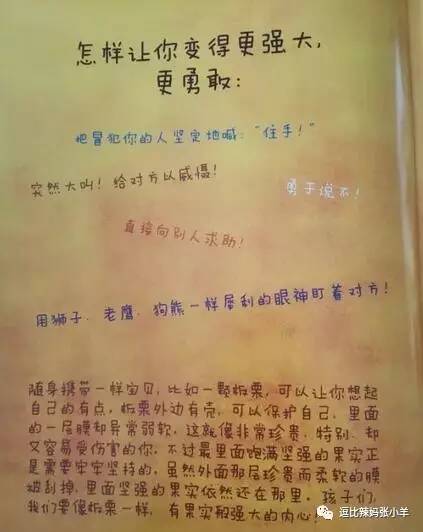 怎样让你变得更强大，
更勇敢：
把冒犯你的人坚定地喊：“住手！”
突然大叫！给对方以威慑！
勇于说不！
直接向别人求助！
用狮子、老鹰、狗熊一样犀利的眼神盯着对方！
随身携带一样宝贝，比如一颗板栗，可以让你想起
自己的有点，板栗外边有壳，可以保护自己，里面
的一层膜却异常弱软，这就像非常珍贵、特别、却
又容易受伤害的你，不过最里面饱满坚强的果实正
是需要牢牢坚持的，虽然外面那层珍贵而柔软的膜
被刮掉，里面坚强的果实依然还在那里。孩子们，
我们要像板栗一样，有果实般强大的内心。
逗比辣妈张小羊